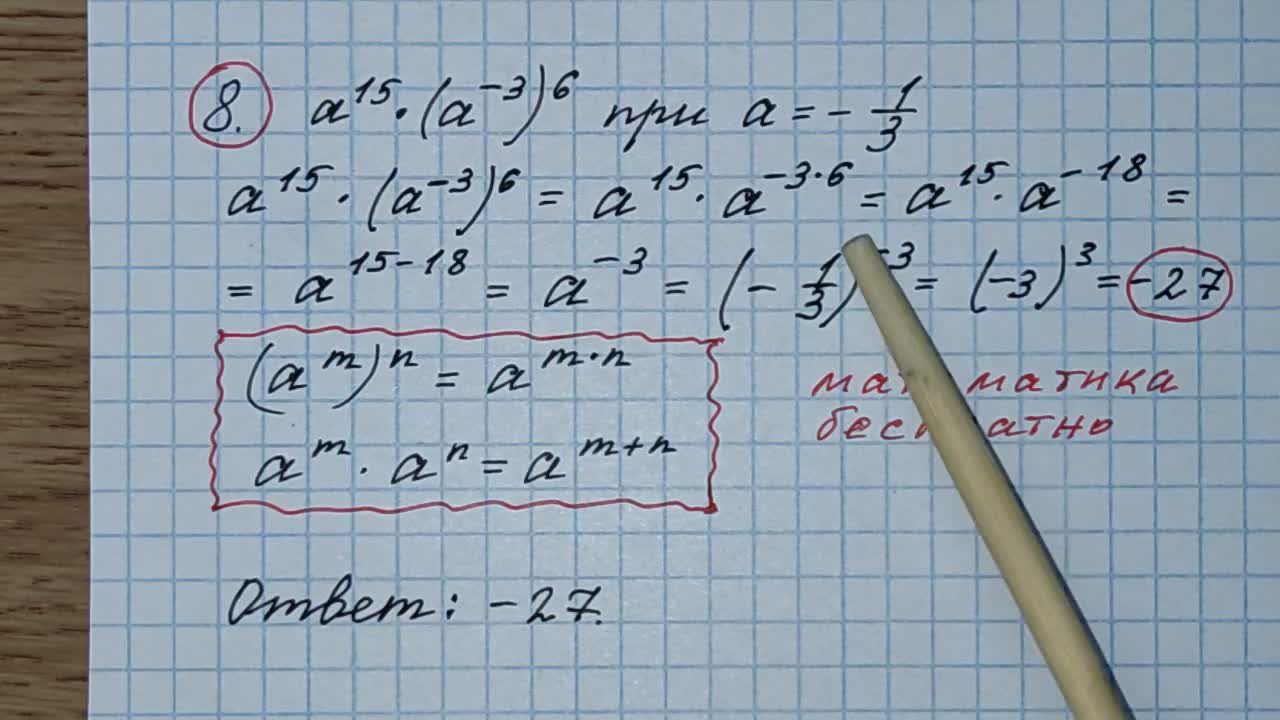 8. a^15 · (a^-3)^6 при a = - 1/3
a^15 · (a^-3)^6 = a^15 · a^-3·6 = a^15 · a^-18 =
= a^15-18 = a^-3 = (- 1/3)^-3 = (-3)^3 = -27
(a^m)^n = a^m·n
a^m · a^n = a^m+n
математика
бесплатно
Ответ: -27.